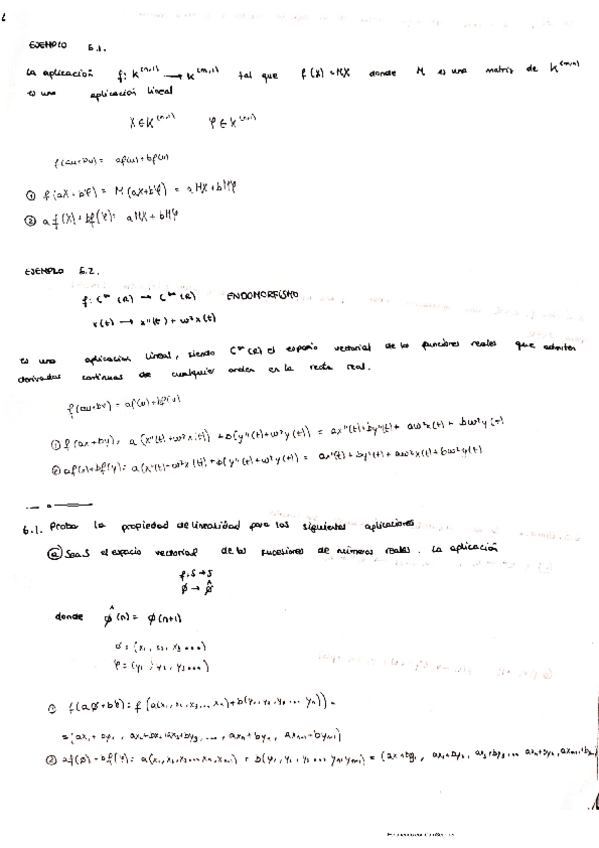 EJEMPLO 6.1.
La aplicación f: K⁽ⁿ'¹⁾ → K⁽ᵐ'¹⁾ tal que f(X) = MX donde M es una matriz de K⁽ᵐ'ⁿ⁾
es una aplicación lineal
X ∈ K⁽ⁿ'¹⁾ Y ∈ K⁽ⁿ'¹⁾
f(au+bv) = af(u)+bf(v)
① f(aX+bY) = M(aX+bY) = aMX+bMY
② af(X)+bf(Y) = aMX+bMY
EJEMPLO 6.2.
f: C^∞(R) → C^∞(R) ENDOMORFISMO
x(t) → x''(t) + ω²x(t)
es una aplicación lineal, siendo C^∞(R) el espacio vectorial de las funciones reales que admiten
derivadas continuas de cualquier orden en la recta real.
f(au+bv) = af(u)+bf(v)
① f(ax+by) = a(x''(t)+ω²x(t)) + b(y''(t)+ω²y(t)) = ax''(t)+by''(t)+ aω²x(t) + bω²y(t)
② af(x)+bf(y) = a(x''(t)+ω²x(t)) + b(y''(t)+ω²y(t)) = ax''(t)+by''(t)+aω²x(t)+bω²y(t)
6.1. Probar la propiedad de linealidad para las siguientes aplicaciones
ⓐ Sea S el espacio vectorial de las sucesiones de números reales. La aplicación
f: S → S
φ → φ̂
donde φ̂(n) = φ(n+1)
φ = (x₁, x₂, x₃ ....)
Y = (y₁, y₂, y₃ ...)
① f(aφ+bY) = f(a(x₁, x₂, x₃, ... xₙ)+b(y₁, y₂, y₃, ... yₙ)) =